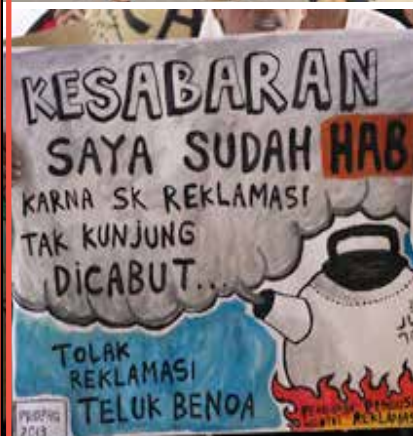 KESABARAN
SAYA SUDAH HAB
KARNA SK REKLAMASI
TAK KUNJUNG
DICABUT...
TOLAK
REKLAMASI
TELUK BENOA
2013